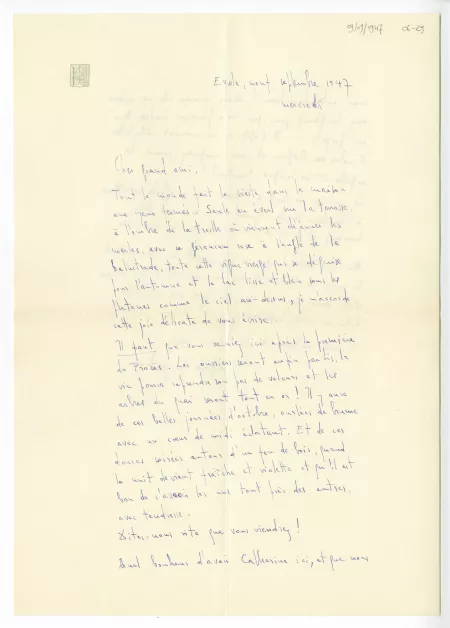 9/09/1947 06-29
Evole, neuf septembre 1947
mercredi
Cher grand ami,
Tout le monde fait la sieste dans la maison
aux yeux fermés. Seule en éveil sur la terrasse,
à l'ombre de la treille où viennent déjeuner les
merles, avec ce géranium rose à l'angle de la
balustrade, toute cette vigne vierge qui se déguise
pour l'automne et le lac lisse et bleu sous les
platanes comme le ciel au-dessus, je m'accorde
cette joie délicate de vous écrire.
Il faut que vous veniez ici après la première
du Procès. Les ouvriers seront enfin partis, la
vie pourra reprendre son pas de velours et les
arbres du quai seront tout en or ! Il y aura
de ces belles journées d'octobre, ourlées de brume
avec un cœur de midi éclatant. Et de ces
douces soirées autour d'un feu de bois, quand
la nuit devient fraîche et violette et qu'il est
bon de s'asseoir les uns tout près des autres,
avec tendresse.
Dites-nous vite que vous viendrez !
Quel bonheur d'avoir Catherine ici, et que nous